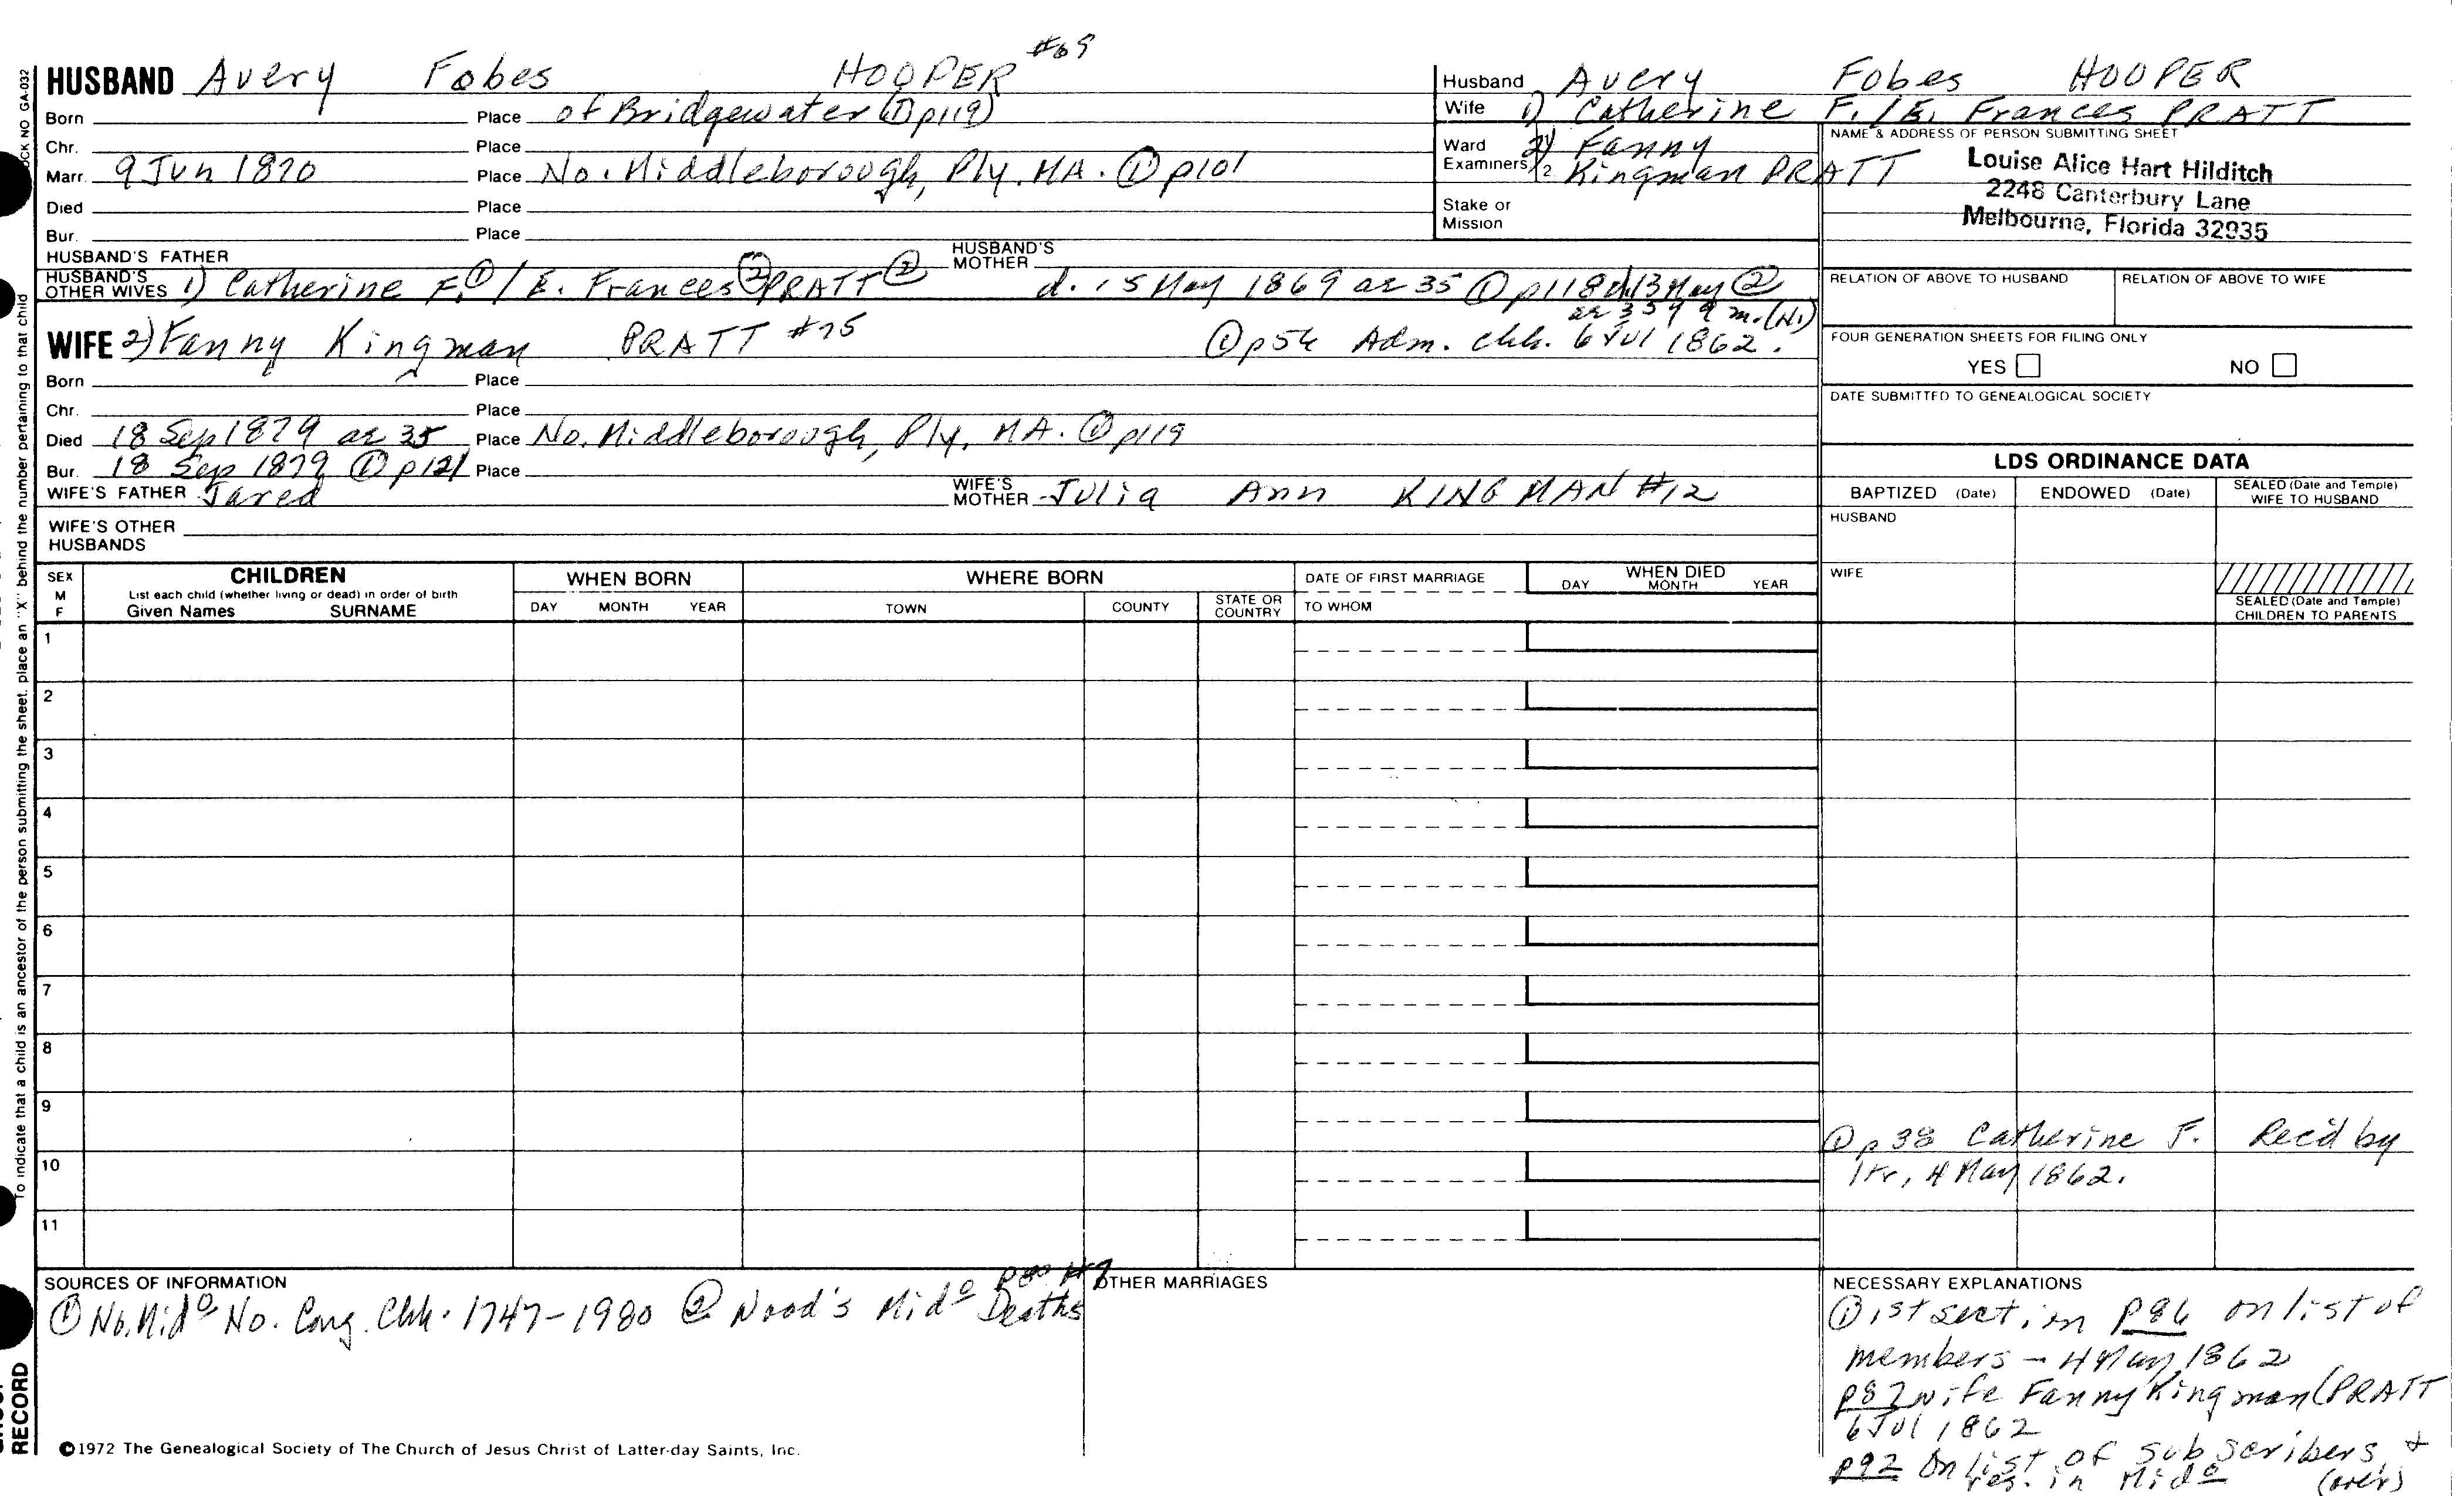 #69
HUSBAND Avery Fobes HOOPER
Born Place of Bridgewater (① p119)
Chr. Place
Marr. 9 Jun 1870 Place No. Middleborough, Ply, MA. ① p101
Died Place
Bur. Place
HUSBAND'S FATHER HUSBAND'S MOTHER
HUSBAND'S OTHER WIVES 1) Catherine F. ① / E. Frances ② PRATT ② d. 15 May 1869 ae 35 ① p118 d. 13 May ②
ae 35 9 m. (N.)
WIFE 2) Fanny Kingman PRATT #75 ① p54 Adm. chh. 6 Jul 1862.
Born Place
Chr. Place
Died 18 Sep 1879 ae 35 Place No. Middleborough, Ply, MA. ① p119
Bur. 18 Sep 1879 ① p121 Place
WIFE'S FATHER Jared WIFE'S MOTHER Julia Ann KINGMAN #12
WIFE'S OTHER HUSBANDS
Husband Avery Fobes HOOPER
Wife 1) Catherine F. / E. Frances PRATT
Ward 2) Fanny
Examiners 2 Kingman PRATT
Stake or Mission
NAME & ADDRESS OF PERSON SUBMITTING SHEET
Louise Alice Hart Hilditch
2248 Canterbury Lane
Melbourne, Florida 32935
RELATION OF ABOVE TO HUSBAND RELATION OF ABOVE TO WIFE
FOUR GENERATION SHEETS FOR FILING ONLY
YES NO
DATE SUBMITTED TO GENEALOGICAL SOCIETY
LDS ORDINANCE DATA
BAPTIZED (Date) ENDOWED (Date) SEALED (Date and Temple) WIFE TO HUSBAND
HUSBAND
WIFE
SEALED (Date and Temple) CHILDREN TO PARENTS
SEX M F
CHILDREN
List each child (whether living or dead) in order of birth
Given Names SURNAME
WHEN BORN
DAY MONTH YEAR
WHERE BORN
TOWN COUNTY STATE OR COUNTRY
DATE OF FIRST MARRIAGE
TO WHOM
WHEN DIED
DAY MONTH YEAR
1
2
3
4
5
6
7
8
9
10
11
① p38 Catherine F. Rec'd by
ltr, 4 May 1862.
SOURCES OF INFORMATION
① No. Mid° No. Cong. Chh. 1747-1980 ② Wood's Mid° Deaths
OTHER MARRIAGES
NECESSARY EXPLANATIONS
① 1st section p86 on list of
members - 4 May 1862
p87 wife Fanny Kingman (PRATT
6 Jul 1862
p92 On list of subscribers, +
res. in Mid° (over)
©1972 The Genealogical Society of The Church of Jesus Christ of Latter-day Saints, Inc.
To indicate that a child is an ancestor of the person submitting the sheet, place an "X" behind the number pertaining to that child
NO GA-032
RECORD